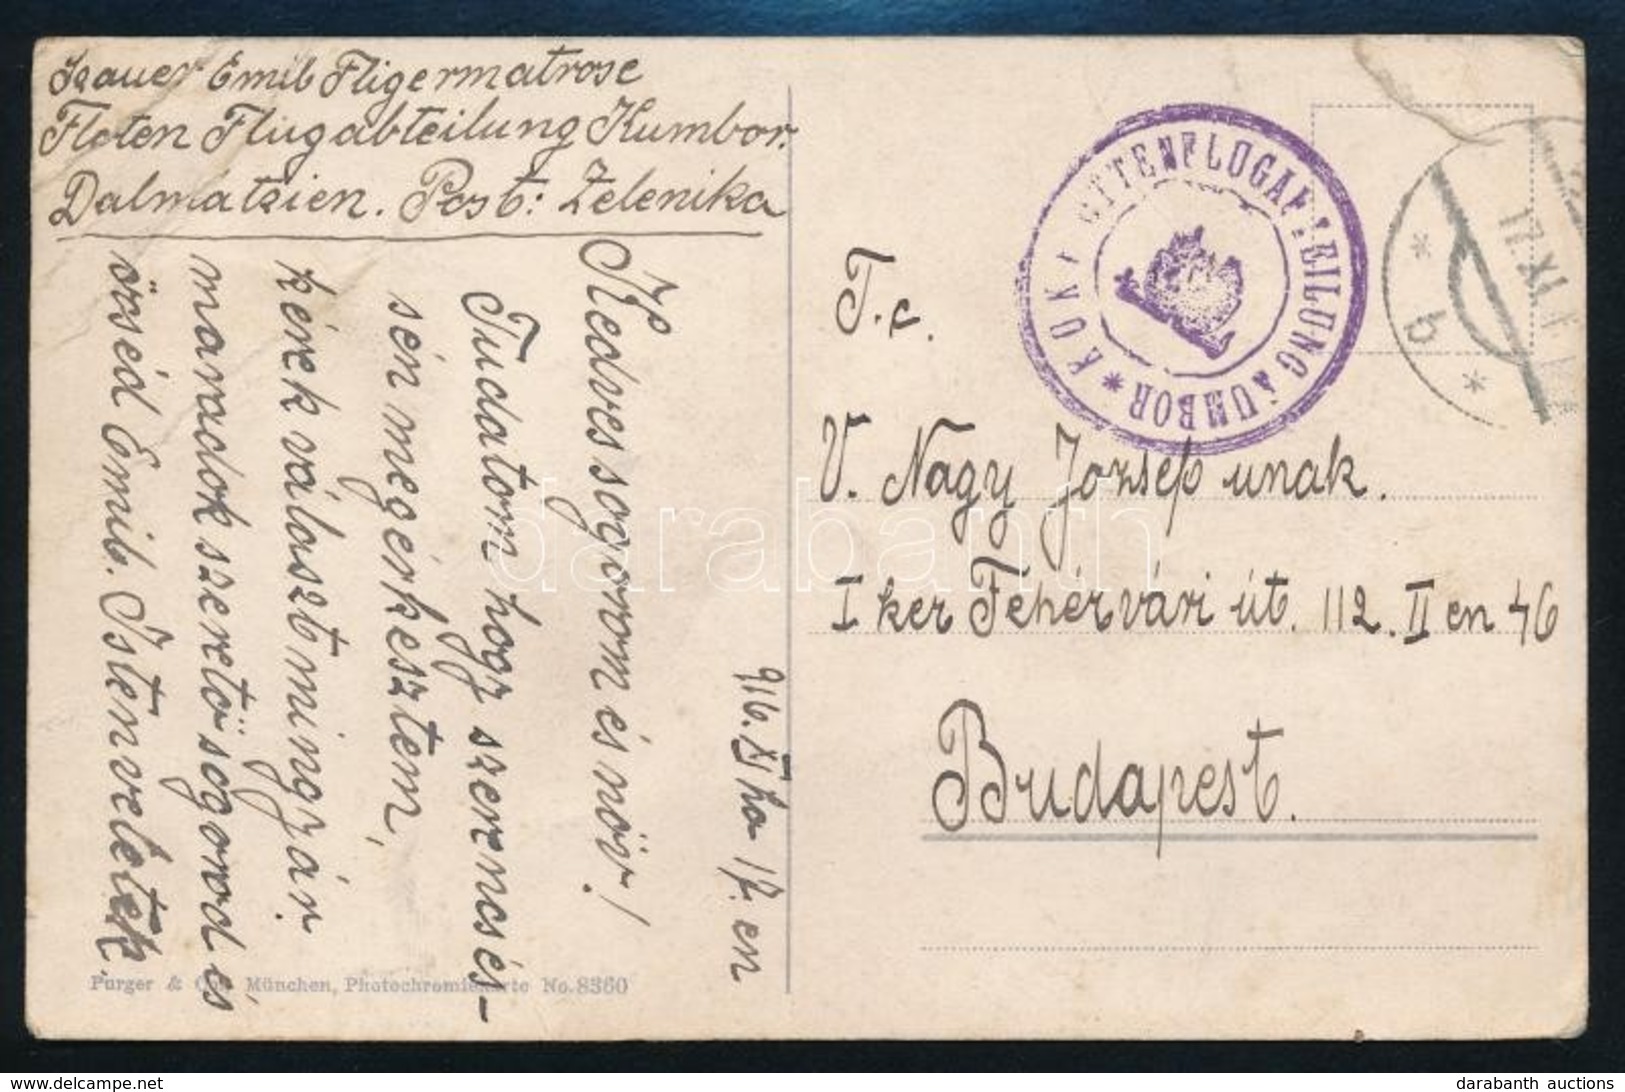 Emil Fligermatrose
Floten Flugabteilung Kumbor.
Dalmátzien. Post: Zelenika
916. XI ha 17. en
Kedves sogorom és növ!
Tudatom hogy szerencsés-
sén megérkesztem,
kérek választ mingyár
maradok szerető sogorod és
örséd Emil. Isten veletek.
Purger & Co., München, Photochromiekarte No. 8360
K.U.K. FLUGABTEILUNG KUMBOR *
17 XI
* b *
T. c.
V. Nagy József urnak.
I ker Fehérvári út. 112. II en 46
Budapest.
darabanth
darabanth auctions